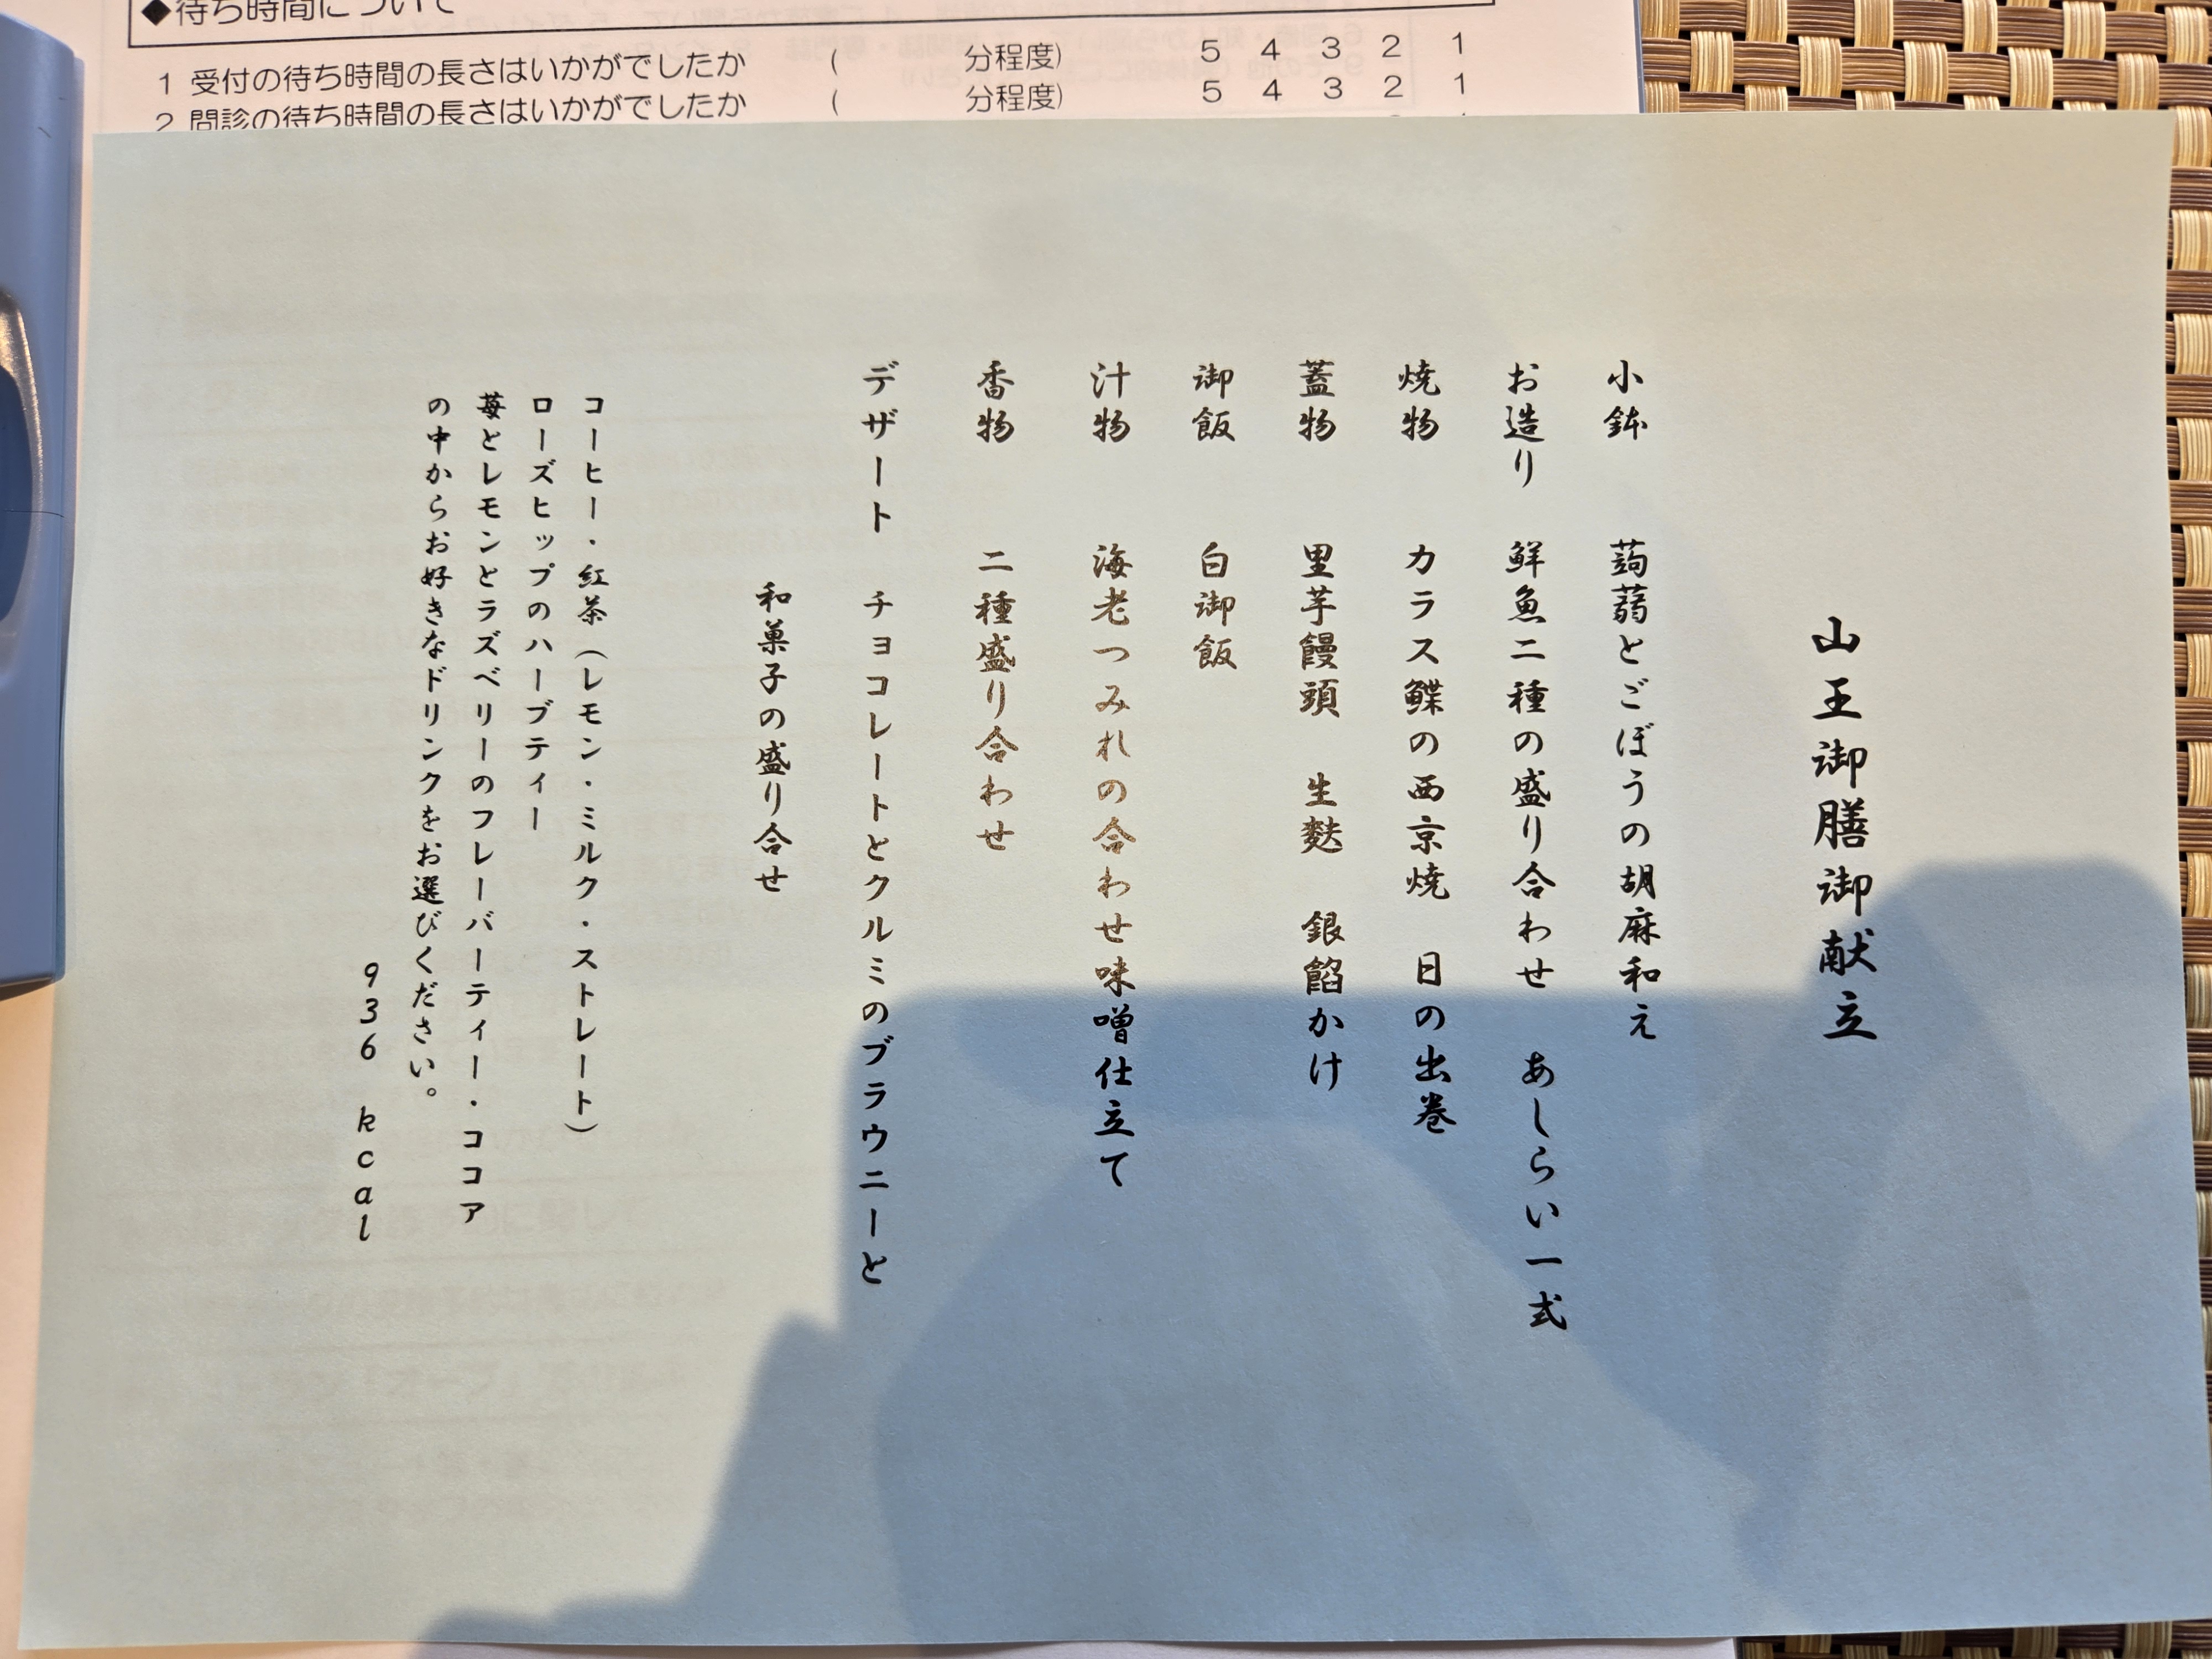 ◆待ち時間について
1 受付の待ち時間の長さはいかがでしたか ( 分程度) 5 4 3 2 1
2 問診の待ち時間の長さはいかがでしたか ( 分程度) 5 4 3 2 1
山王御膳御献立
小鉢 蒟蒻とごぼうの胡麻和え
お造り 鮮魚二種の盛り合わせ あしらい一式
焼物 カラス鰈の西京焼 日の出巻
蓋物 里芋饅頭 生麩 銀餡かけ
御飯 白御飯
汁物 海老つみれの合わせ味噌仕立て
香物 二種盛り合わせ
デザート チョコレートとクルミのブラウニーと
和菓子の盛り合せ
コーヒー・紅茶(レモン・ミルク・ストレート)
ローズヒップのハーブティー
苺とレモンとラズベリーのフレーバーティー・ココア
の中からお好きなドリンクをお選びください。
936 kcal